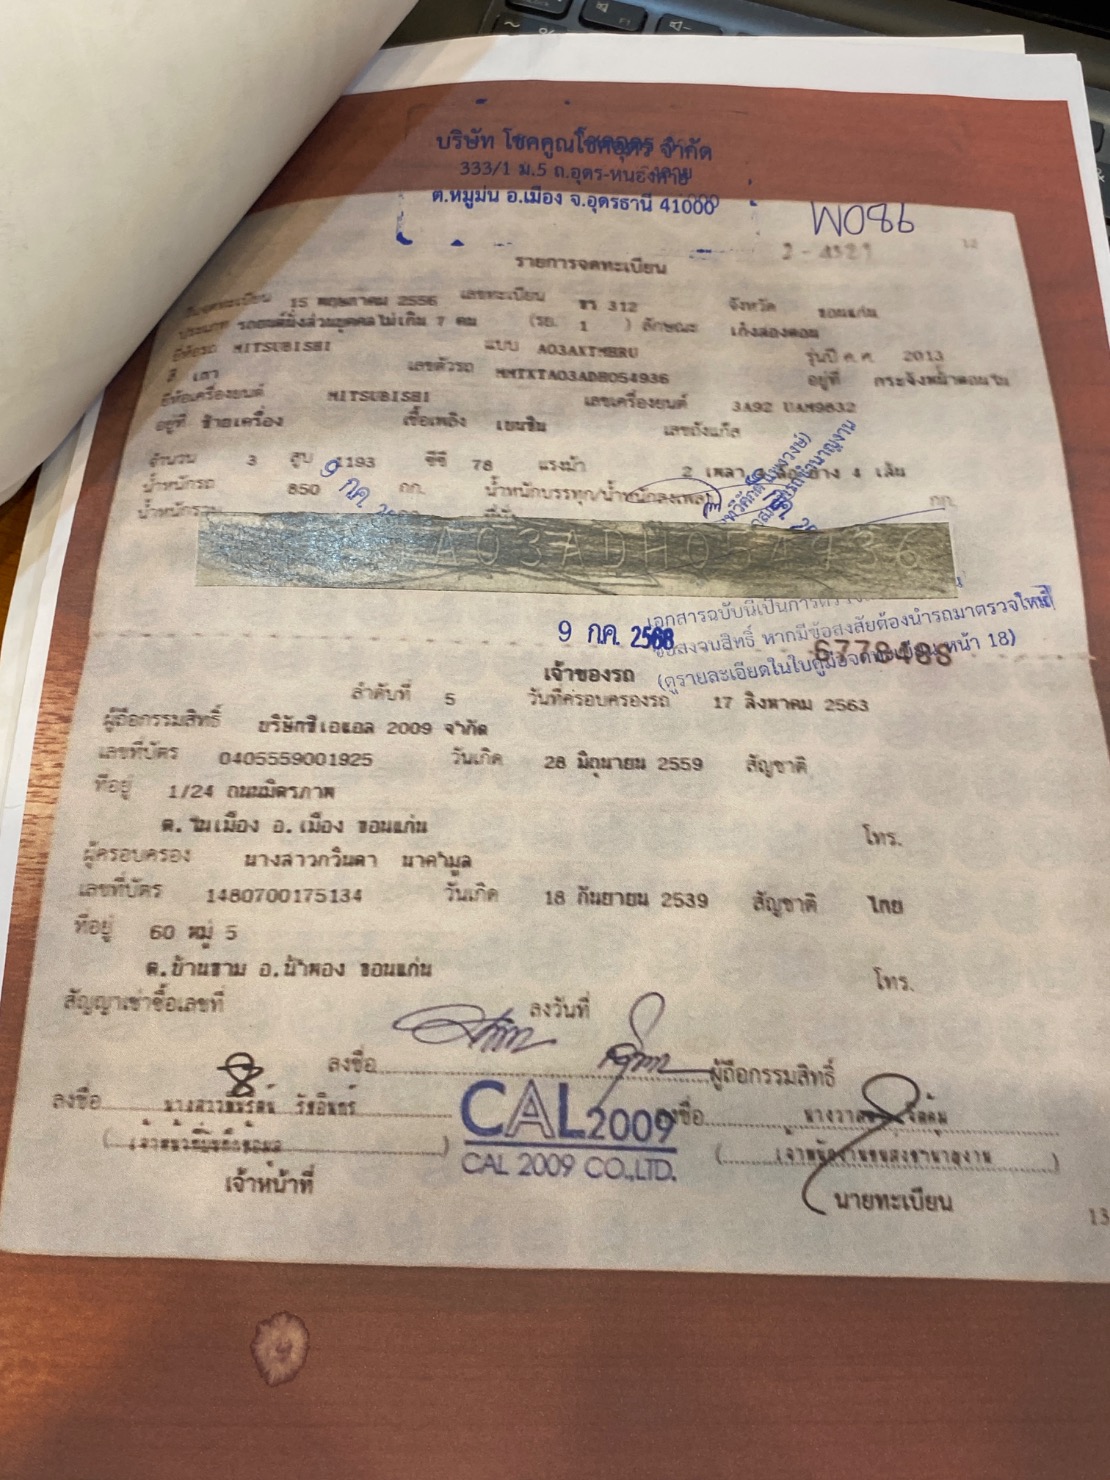 บริษัท โชคคูณโชคอุดร จำกัด
333/1 ม.5 ถ.อุดร-หนองคาย
ต.หมูม่น อ.เมือง จ.อุดรธานี 41000
W086
2-4521
12
รายการจดทะเบียน
วันจดทะเบียน 15 พฤษภาคม 2556 เลขทะเบียน ขว 312 จังหวัด ขอนแก่น
ประเภท รถยนต์นั่งส่วนบุคคลไม่เกิน 7 คน (รย. 1 ) ลักษณะ เก๋งสองตอน
ยี่ห้อรถ MITSUBISHI แบบ A03AXTMHRU รุ่นปี ค.ศ. 2013
สี เทา เลขตัวรถ MMTXTA03ADH054936 อยู่ที่ กระจังหน้าตอนใน
ยี่ห้อเครื่องยนต์ MITSUBISHI เลขเครื่องยนต์ 3A92 UAM9832
อยู่ที่ ซ้ายเครื่อง เชื้อเพลิง เบนซิน เลขถังแก๊ส
จำนวน 3 สูบ 1193 ซีซี 78 แรงม้า 2 เพลา 4 ล้อ ยาง 4 เส้น
น้ำหนักรถ 850 กก. น้ำหนักบรรทุก/น้ำหนักลงเพลา กก.
น้ำหนักรวม
9 ก.ค.
A03ADH054936
เอกสารฉบับนี้เป็นการตรวจ
9 ก.ค. 2568
หากมีข้อสงสัยต้องนำรถมาตรวจใหม่
(ดูรายละเอียดในใบคู่มือจดทะเบียน หน้า 18)
6778488
เจ้าของรถ
ลำดับที่ 5 วันที่ครอบครองรถ 17 สิงหาคม 2563
ผู้ถือกรรมสิทธิ์ บริษัทซีเอแอล 2009 จำกัด
เลขที่บัตร 0405559001925 วันเกิด 28 มิถุนายน 2559 สัญชาติ
ที่อยู่ 1/24 ถนนมิตรภาพ
ต.ในเมือง อ.เมือง ขอนแก่น โทร.
ผู้ครอบครอง นางสาวกวินดา นาคำมูล
เลขที่บัตร 1480700175134 วันเกิด 18 กันยายน 2539 สัญชาติ ไทย
ที่อยู่ 60 หมู่ 5
ต.บ้านขาม อ.น้ำพอง ขอนแก่น โทร.
สัญญาเช่าซื้อเลขที่ ลงวันที่
ลงชื่อ ผู้ถือกรรมสิทธิ์
ลงชื่อ ลงชื่อ
CAL2009
CAL 2009 CO.,LTD.
(เจ้าหน้าที่บันทึกข้อมูล)
เจ้าหน้าที่
นายทะเบียน
13